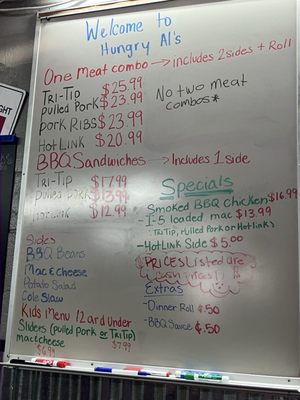 Welcome to
Hungry Al's
One Meat combo → includes 2 sides + Roll
Tri-Tip $25.99
Pulled Pork $23.99
Pork Ribs $23.99
Hot Link $20.99
No two meat
combos*
BBQ Sandwiches → Includes 1 side
Tri-Tip $17.99
pulled pork $13.99
Hot Link $12.99
Specials
Smoked BBQ Chicken $16.99
- I-5 loaded mac $13.99
(Tri Tip, Pulled Pork or Hot Link)
- Hot Link Side $5.00
PRICES Listed are
cash prices!
Extras
- Dinner Roll $.50
- BBQ Sauce $.50
Sides
BBQ Beans
Mac & Cheese
Potato Salad
Cole Slaw
Kids Menu 12 and under
Sliders (pulled pork or Tri Tip)
$7.99
mac & cheese
$6.99